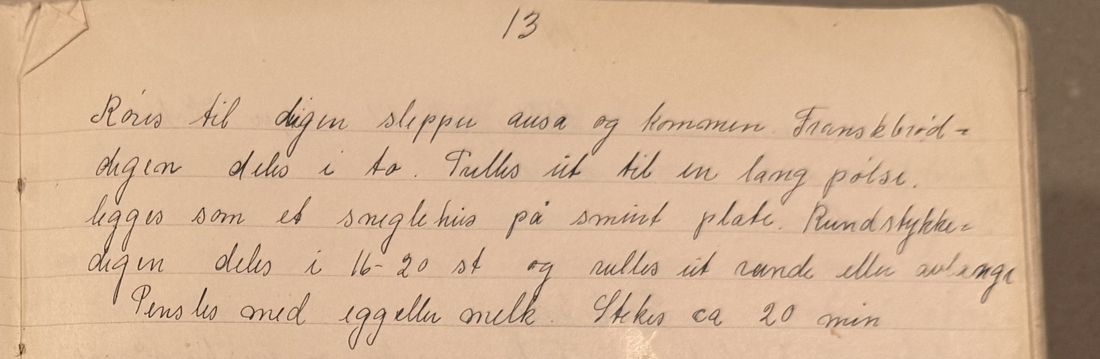 13
Röres til digen slepper ausa og kommen. Franskbröd=
digen deles i to. Rulles ut til en lang pölse.
legges som et sneglehus på smurt plate. Rundstykke=
digen deles i 16-20 st og rulles ut runde eller avlange
Pensles med egg eller melk. Stekes ca 20 min